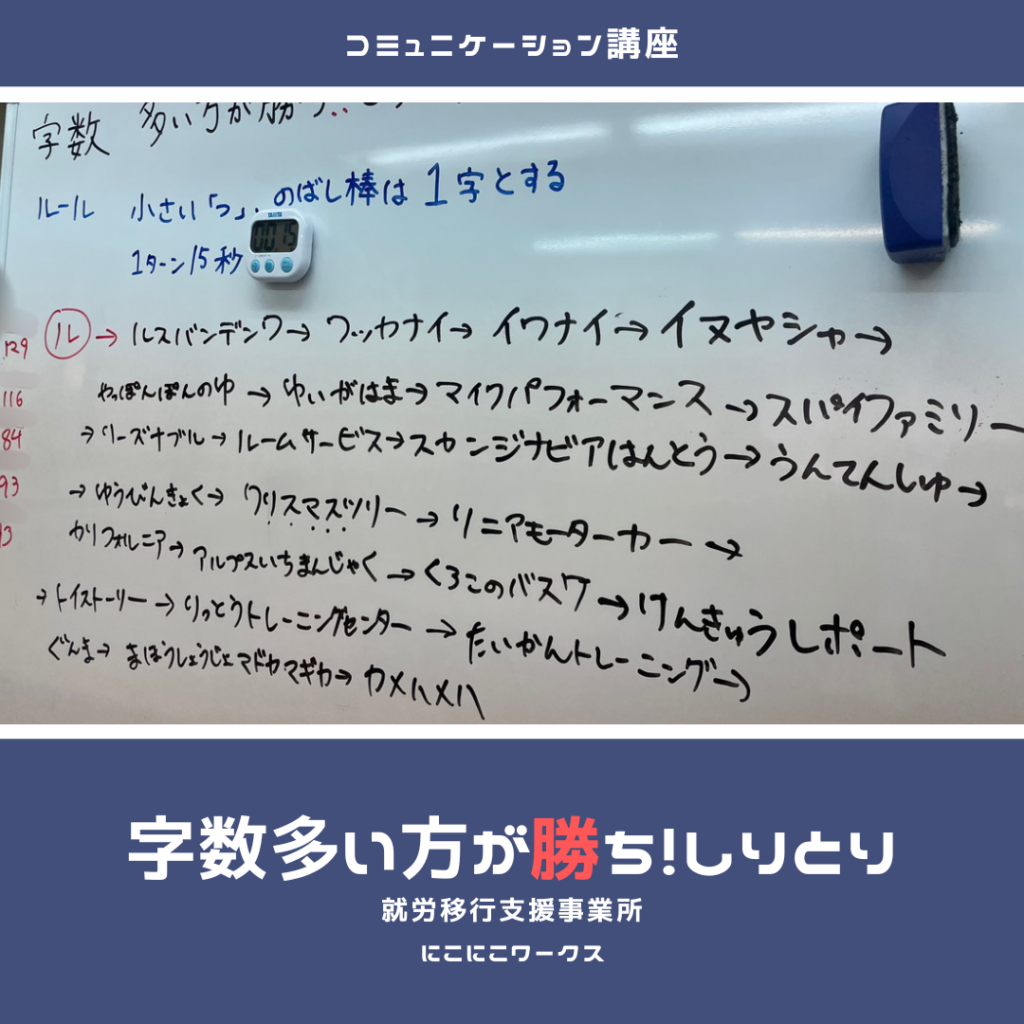 コミュニケーション講座
字数 多い方が勝ち!!
ルール 小さい「っ」、のばし棒は1字とする
1ターン15秒
00 15
129 ル→ルスバンデンワ→ワッカナイ→イワナイ→イヌヤシャ→
116 やっぽんぽんのゆ→ゆいがはま→マイクパフォーマンス→スパイファミリー
84 →リーズナブル→ルームサービス→スカンジナビアはんとう→うんてんしゅ→
93 →ゆうびんきょく→クリスマスツリー→リニアモーターカー→
カリフォルニア→アルプスいちまんじゃく→くろこのバスケ→けんきゅうレポート
→トイストーリー→りっとうトレーニングセンター→たいかんトレーニング→
ぐんま→まほうしょうじょマドカマギカ→カメハメハ
字数多い方が勝ち!しりとり
就労移行支援事業所
にこにこワークス